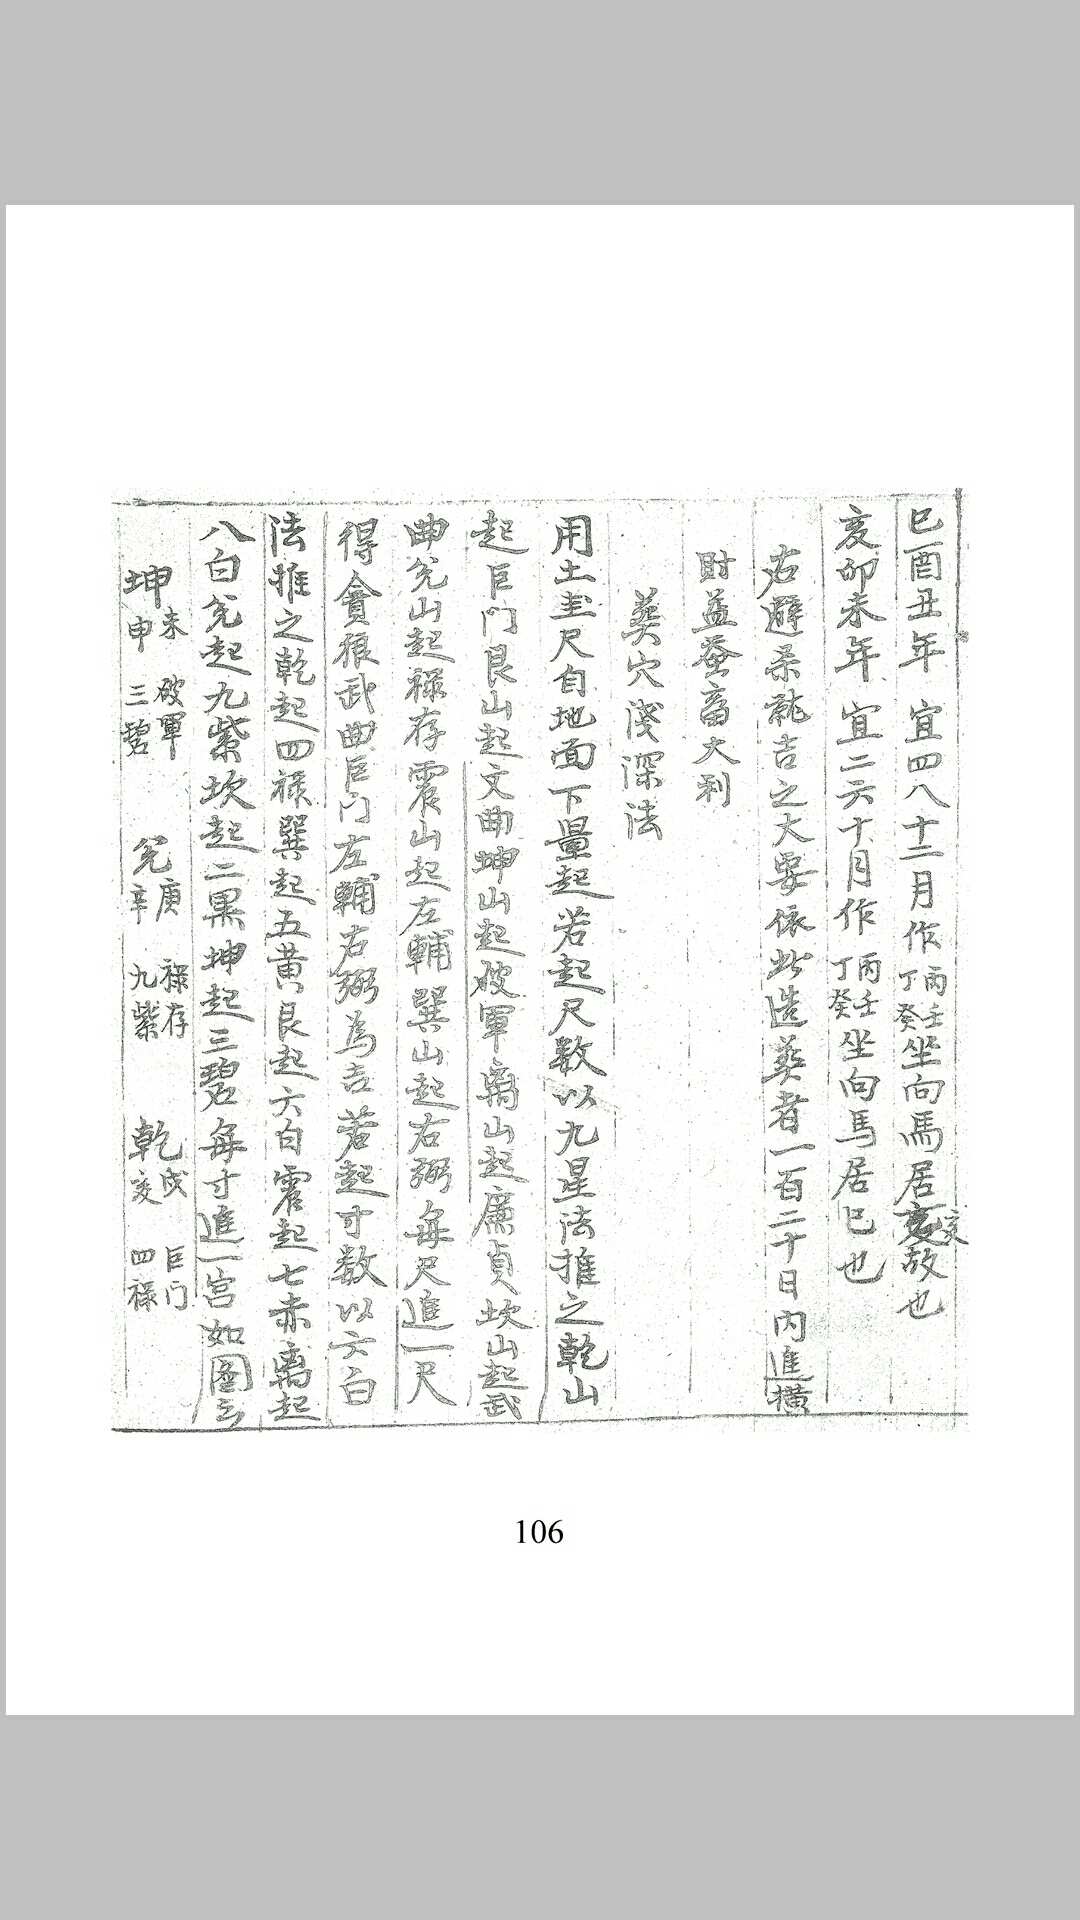 巳酉丑年 宜四八十二月作丙壬丁癸坐向馬居亥亥故也
亥卯未年 宜二六十月作丙壬丁癸坐向馬居巳也
右避杀就吉之大要依此造葬者一百二十日内進橫
財益蚕畜大利
葬穴淺深法
用土圭尺自地面下量起若起尺数以九星法推之乾山
起巨门艮山起文曲坤山起破軍离山起廉貞坎山起武
曲兌山起祿存震山起左輔巽山起右弼每尺進一尺
得貪狼武曲巨门左輔右弼為吉若起寸数以六白
法推之乾起四祿巽起五黄艮起六白震起七赤离起
八白兌起九紫坎起二黑坤起三碧每寸進一宫如图云
坤未申 破軍三碧 兌庚辛 祿存九紫 乾戌亥 巨门四祿
106